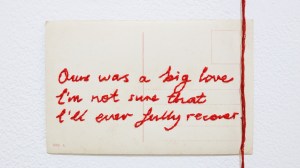 Ours was a big love
I'm not sure that
I'll ever fully recover.